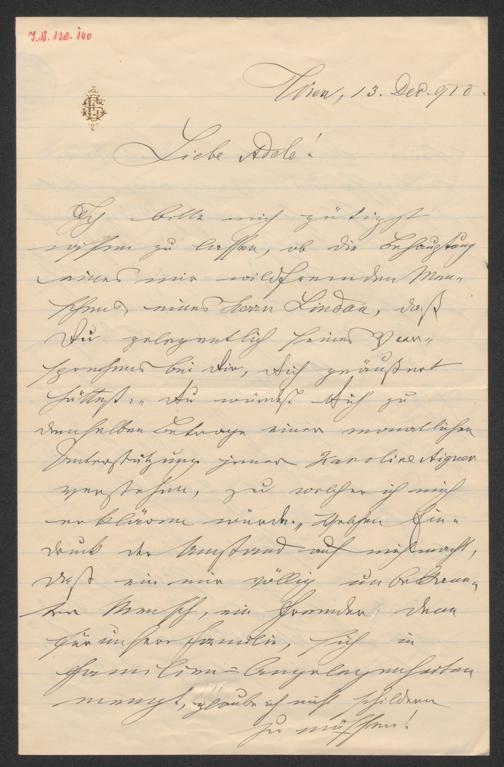 I.N. 120.140
Wien, 13. Dez. 910.
Liebe Adele!
Ich bitte mich gütigst
wissen zu lassen, ob die Behauptung
eines mir wildfremden Men-
schens, eines Herrn Lindau, daß
Du gelegentlich seines Vor-
sprechens bei Dir, Dich geäußert
hättest: „Du würdest Dich zu
demselben Betrage einer monatlichen
Unterstützung jener Karoline Aigner
verstehen, zu welcher ich mich
erklären würde." Welchen Ein-
druck der Umstand auf mich macht,
daß ein mir völlig unbekann-
ter Mensch, ein Fremder denn
für unsere Familie, sich in
Familien-Angelegenheiten
mengt, glaube ich nicht schildern
zu müssen!